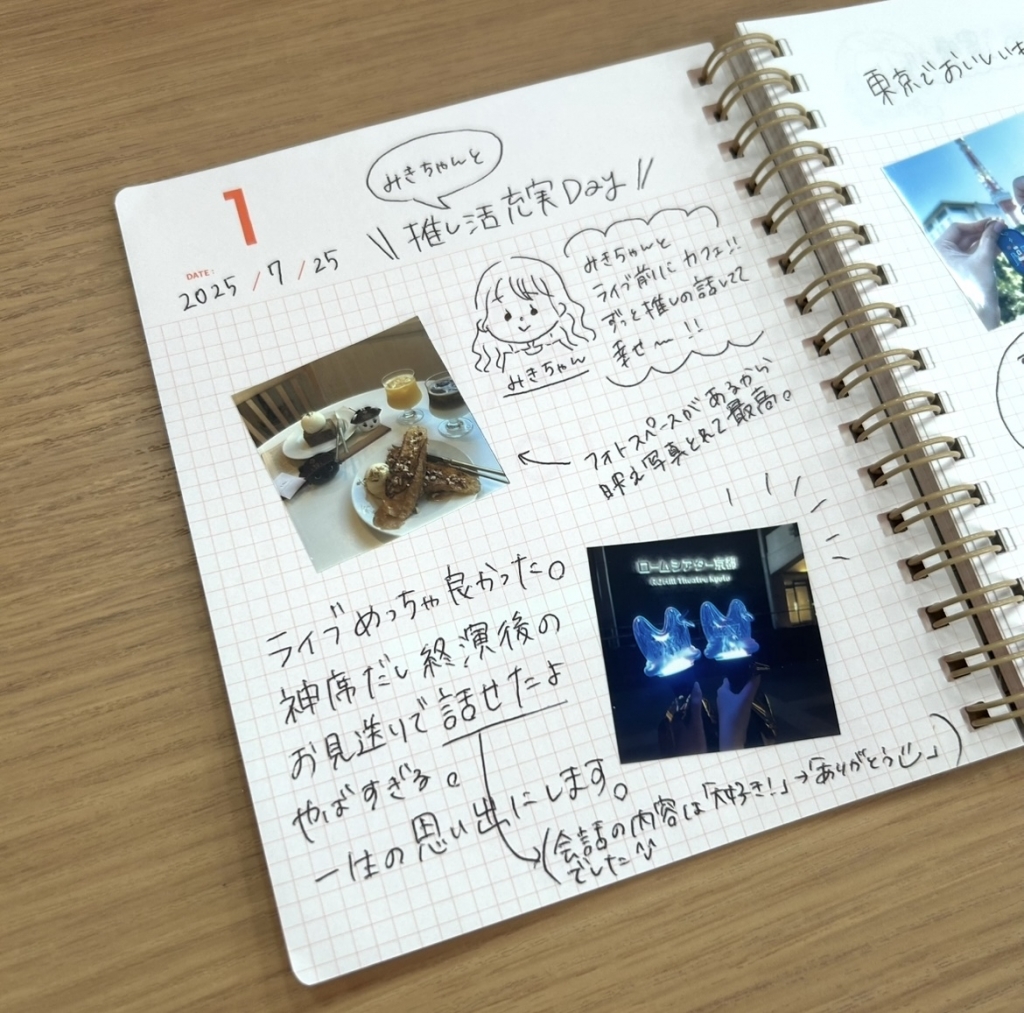 1
DATE:
2025/7/25
みきちゃんと
\\ 推し活充実Day //
みきちゃんと
ライブ前にカフェ!!
ずっと推しの話してて
幸せ〜!!
みきちゃん
フォトスペースがあるから
映え写真とれて最高。
ロームシアター京都
ROHM Theatre Kyoto
ライブめっちゃ良かった。
神席だし終演後の
お見送りで話せたよ
やばすぎる。
一生の思い出にします。
(会話の内容は「大好き!」→「ありがとう」)
でした
東京でおいしい